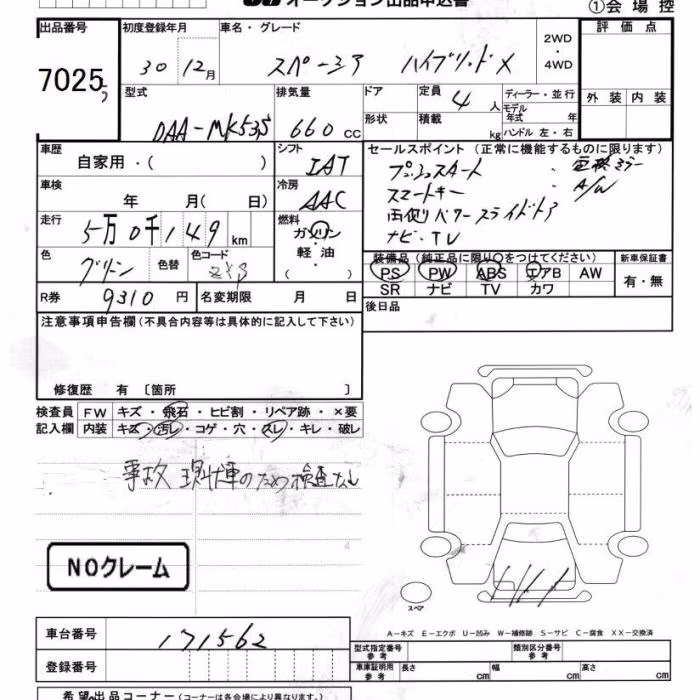 オークション出品申込書
①会場控
出品番号 初度登録年月 車名・グレード 2WD・4WD 評価点
7025 30 12月 スペーシア ハイブリッドX
型式 排気量 ドア 定員 4人 ディーラー・並行 外装 内装
DAA-MK53S 660cc 形状 積載 kg モデル年式 年 ハンドル 左・右
車歴 シフト セールスポイント(正常に機能するものに限ります)
自家用・( ) IAT プッシュスタート ・電格ミラー
車検 冷房 スマートキー ・A/W
年 月( 日) AAC 両側パワースライドドア
走行 5万0千149km 燃料 ガソリン ナビ・TV
軽油
( )
色 グリーン 色替 色コード
装備品(純正品に限り○をつけてください) 新車保証書
PS PW ABS エアB AW 有・無
SR ナビ TV カワ
R券 9310円 名変期限 月 日 後日品
注意事項申告欄(不具合内容等は具体的に記入して下さい)
修復歴 有 〔箇所 〕
検査員 FW キズ・飛石・ヒビ割・リペア跡・×要
記入欄 内装 キズ・汚レ・コゲ・穴・スレ・キレ・破レ
事故現状車のため検査なし
NOクレーム
スペア
A-キズ E-エクボ U-凹み W-補修跡 S-サビ C-腐食 XX-交換済
車台番号 171562
登録番号
型式指定番号 参考 類別区分番号 参考
車庫証明用 参考 長さ cm 幅 cm 高さ cm
希望出品コーナー(コーナーは各会場により異なります。)